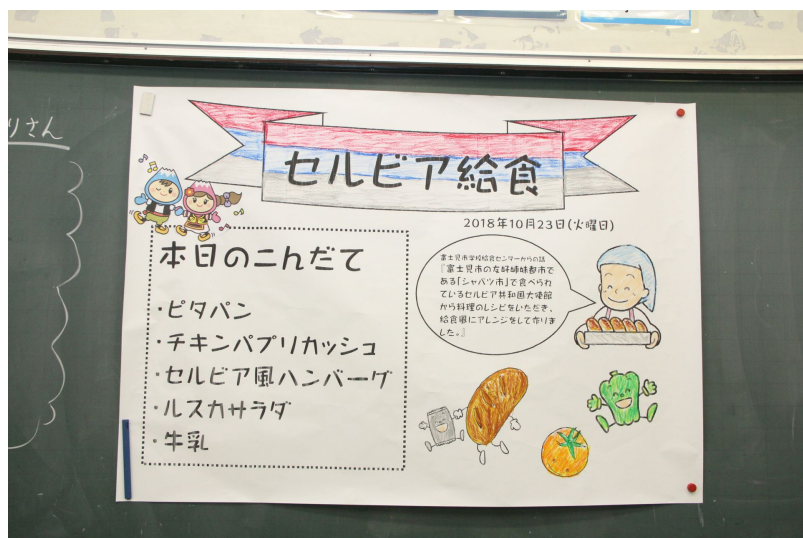 りさん
セルビア給食
2018年10月23日(火曜日)
本日のこんだて
・ピタパン
・チキンパプリカッシュ
・セルビア風ハンバーグ
・ルスカサラダ
・牛乳
富士見市学校給食センターからの話
『富士見市の友好姉妹都市で
ある「シャバツ市」で食べられ
ているセルビア共和国大使館
から料理のレシピをいただき、
給食風にアレンジをして作りま
した。』